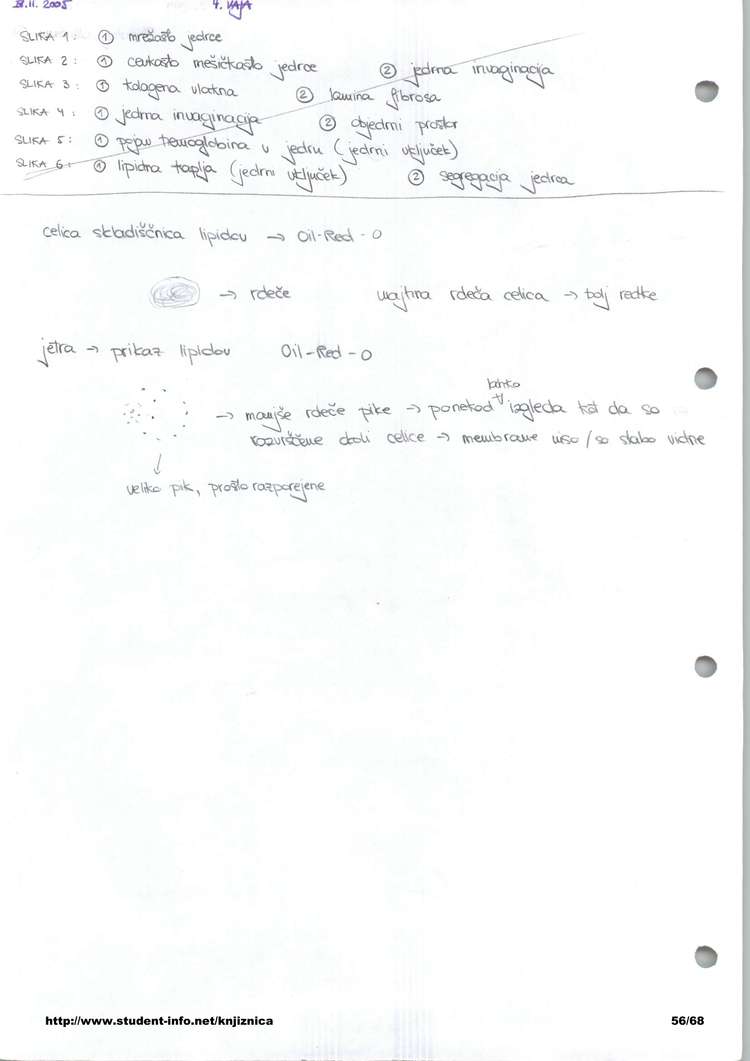 11. 2005 4. VAJA
SLIKA 1: ① mrežasto jedrce
SLIKA 2: ① cevkasto mešičkasto jedrce ② jedrna invaginacija
SLIKA 3: ① kolagena vlakna ② lamina fibrosa
SLIKA 4: ① jedrna invaginacija ② objedrni prostor
SLIKA 5: ① pojav hemoglobina v jedru (jedrni vključek)
SLIKA 6: ① lipidna kaplja (jedrni vključek) ② segregacija jedrca
celica skladiščnica lipidov → Oil-Red-O
→ rdeče manjhna rdeča celica → bolj redke
jetra → prikaz lipidov Oil-Red-O
lahko
→ manjše rdeče pike → ponekod izgleda kot da so
razvrščene okoli celice → membrane niso / so slabo vidne
veliko pik, prosto razporejene
http://www.student-info.net/knjiznica 56/68